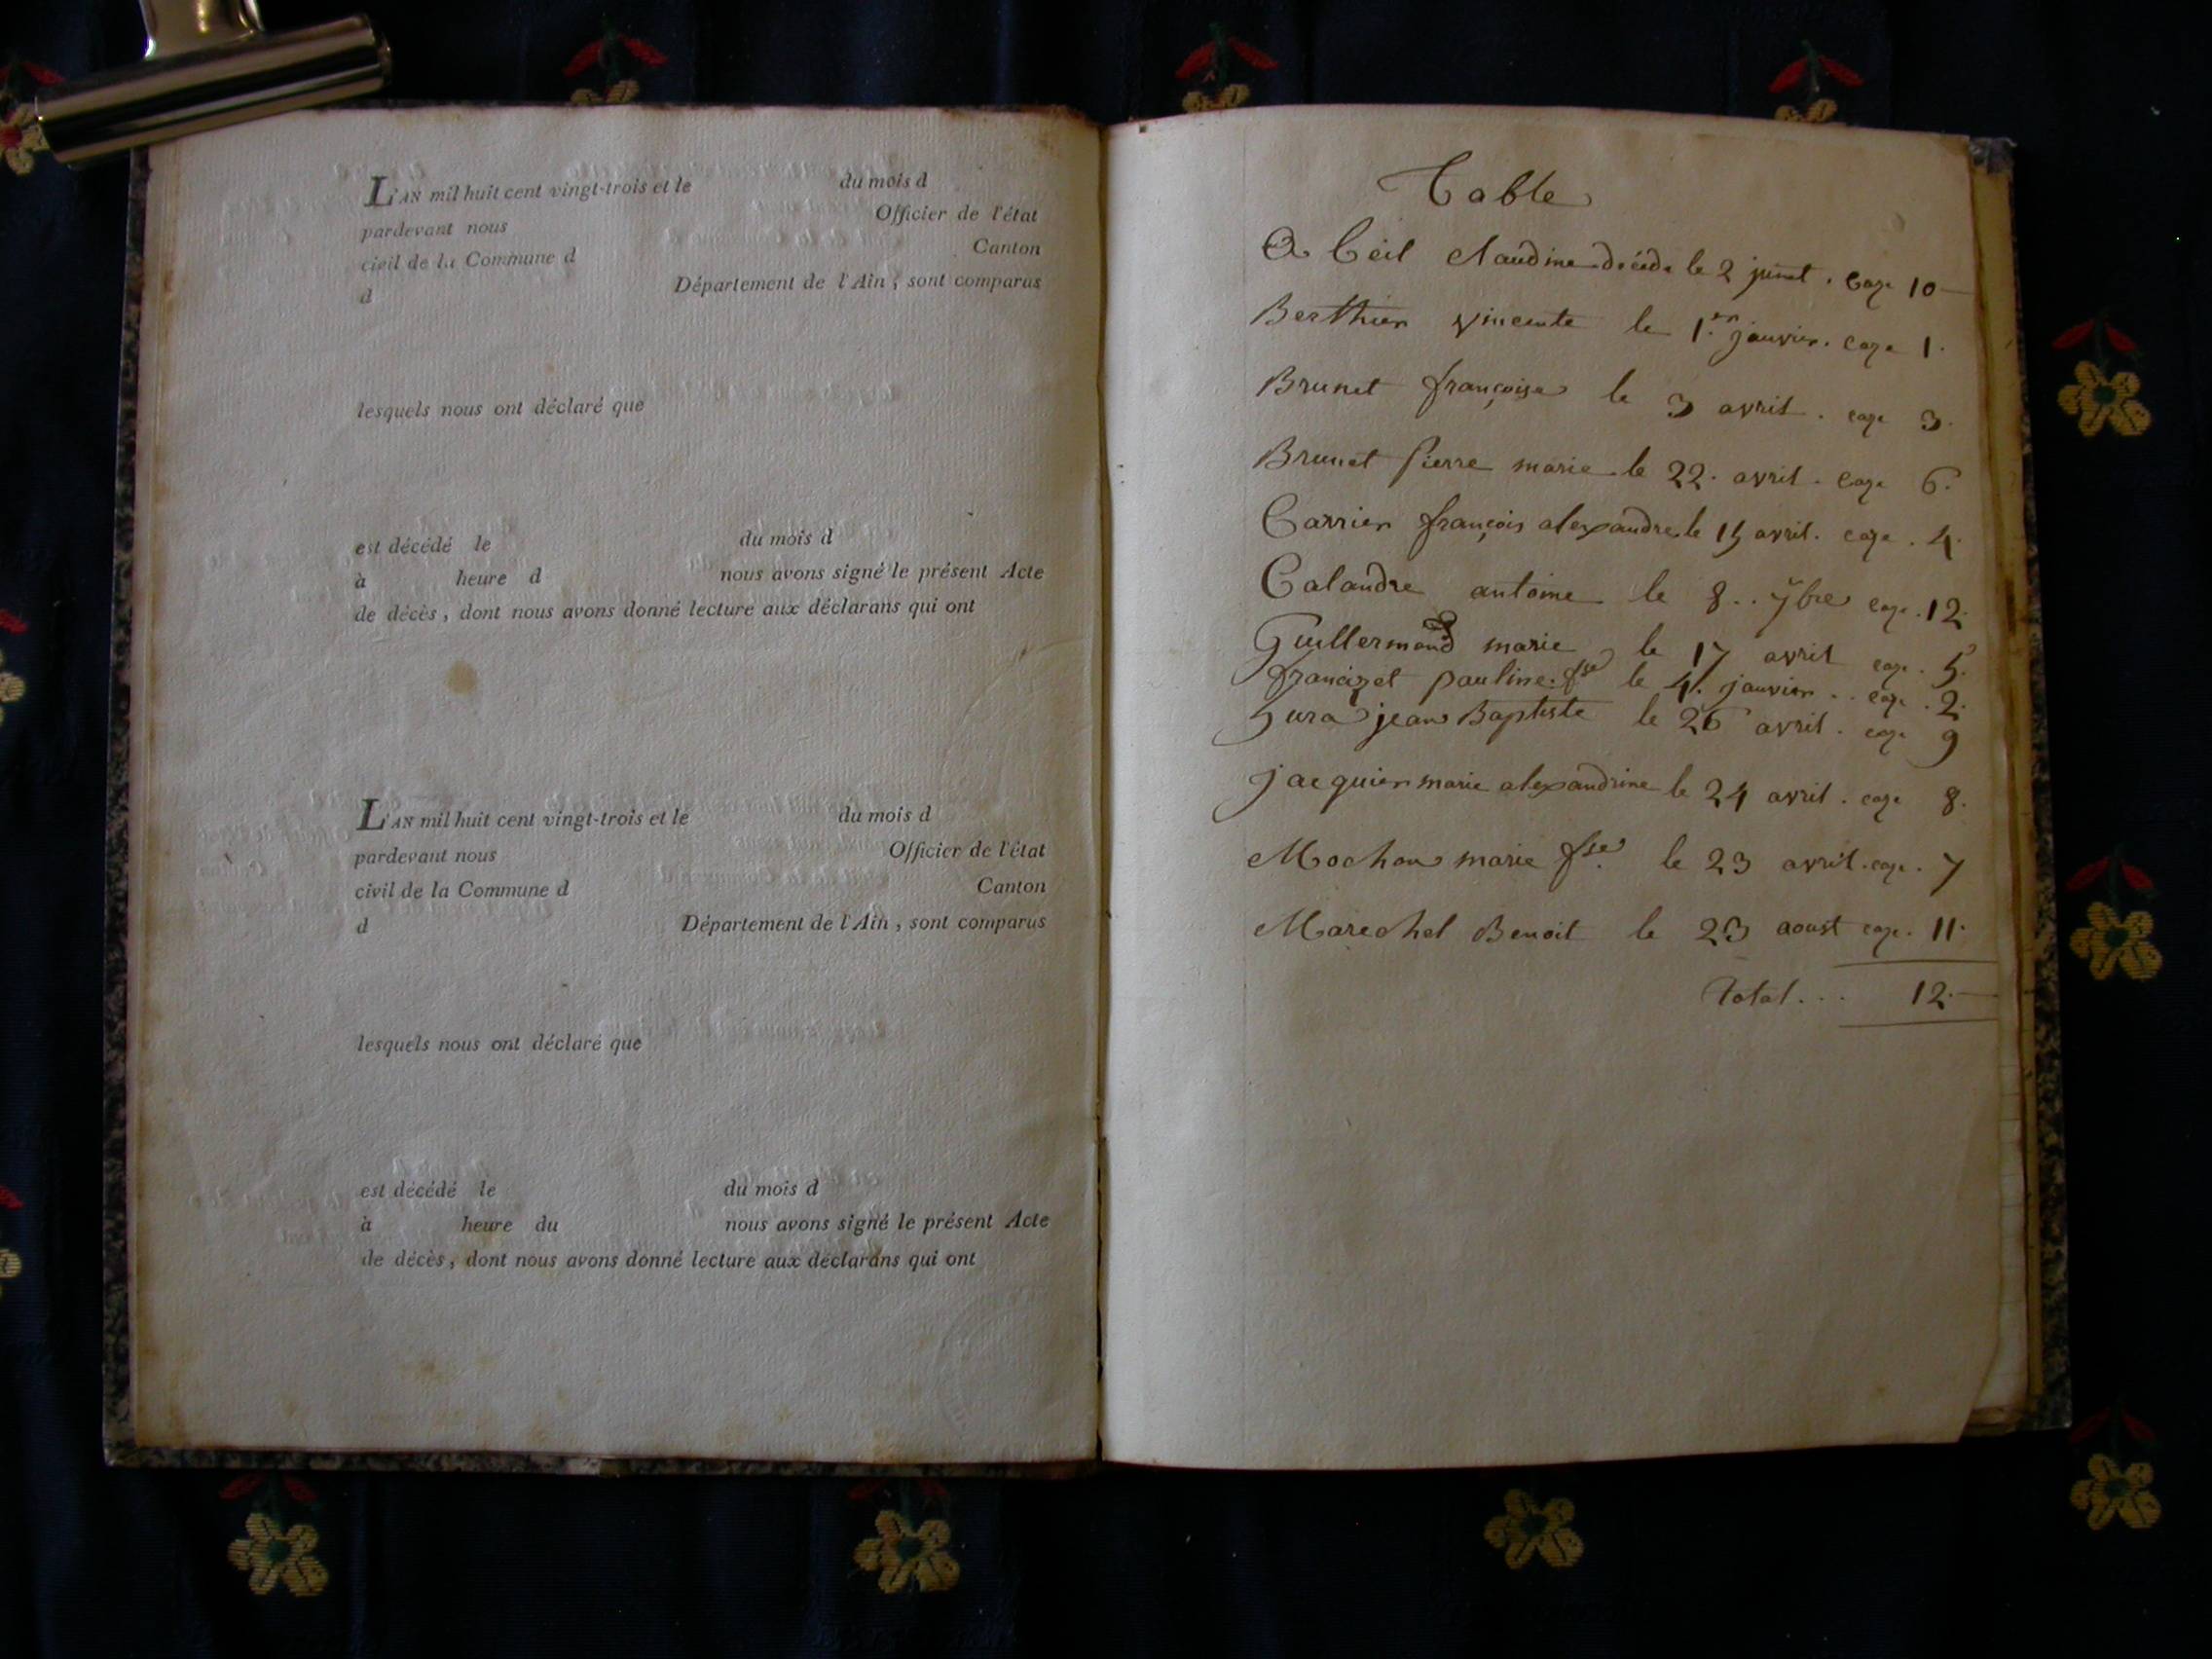 L'AN mil huit cent vingt-trois et le du mois d
pardevant nous Officier de l'état
civil de la Commune d Canton
d Département de l'Ain, sont comparus
lesquels nous ont déclaré que
est décédé le du mois d
à heure d nous avons signé le présent Acte
de décès, dont nous avons donné lecture aux déclarans qui ont
L'AN mil huit cent vingt-trois et le du mois d
pardevant nous Officier de l'état
civil de la Commune d Canton
d Département de l'Ain, sont comparus
lesquels nous ont déclaré que
est décédé le du mois d
à heure du nous avons signé le présent Acte
de décès, dont nous avons donné lecture aux déclarans qui ont
Table
claudine le 2 10
Berthier vincente le 1.er janvier. 1.
Brunet françoise le 3 avril. 3.
Brunet pierre marie le 22. avril. 6.
Carrier françois alexandre le 15 avril. 4.
Calandre antoine le 8.. 12.
Guillermond marie le 17 avril 5.
pauline fse le 4. janvier.. 2.
jean Baptiste le 26 avril. 9
jacquier marie alexandrine le 24 avril. 8.
Mochon marie fse. le 23 avril. 7
Marechel Benoit le 23 aoust 11.
Total... 12.